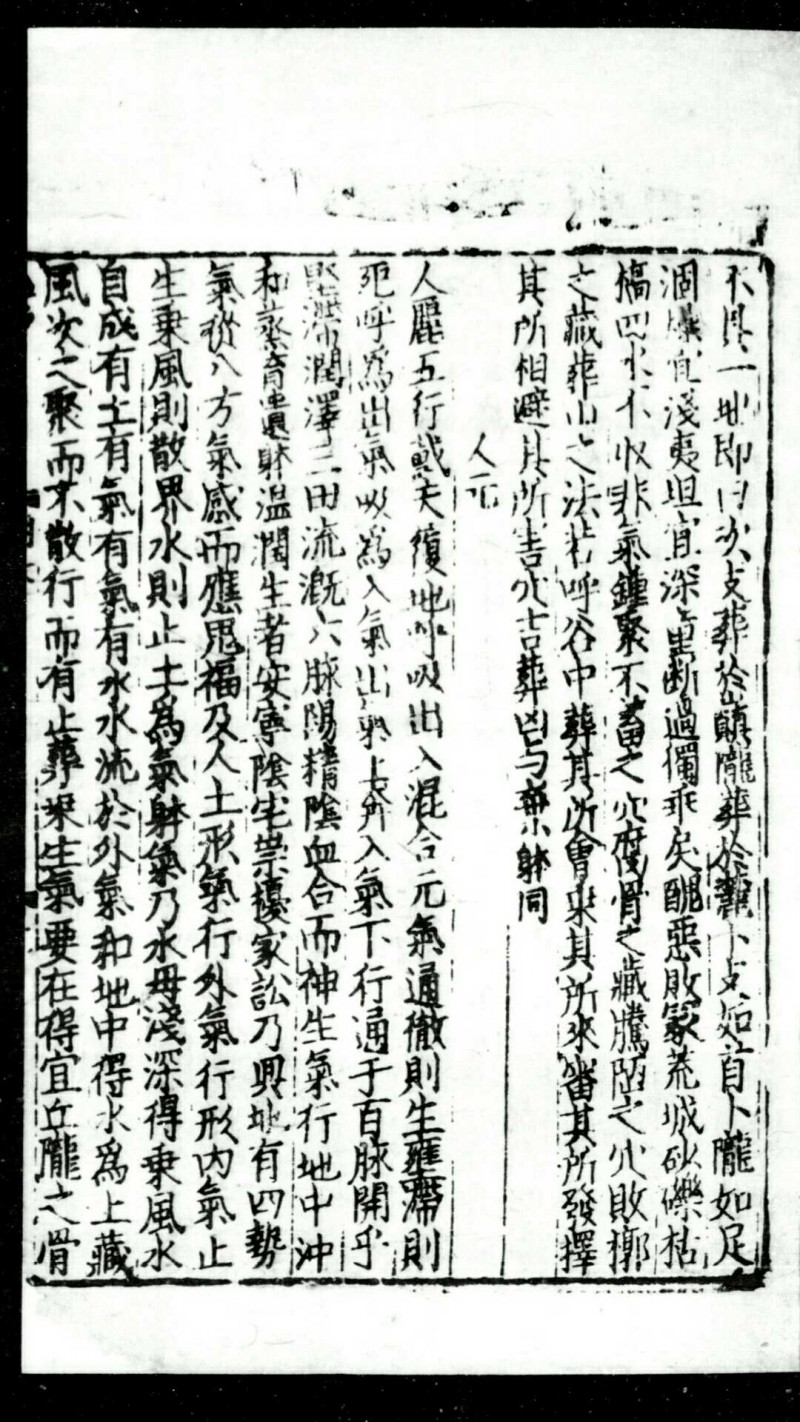 不具一地即曰次支葬於巔隴葬於麓卜支如首卜隴如足
涸燥宜淺夷坦宜深童斷過獨乖戾醜惡敗冢荒城砂礫枯
槁四水不收非氣鍾聚不蓄之穴腐骨之藏騰陋之穴敗槨
之藏葬山之法若呼谷中葬其所會乘其所來審其所發擇
其所相避其所害穴吉葬凶与棄躰同
人元
人麗五行戴天復地呼吸出入混合元氣通徹則生壅滯則
死呼爲出氣吸爲入氣出氣上升入氣下行通于百脉開乎
潤澤三田流溉六脉陽精陰血合而神生氣行地中沖
和蒸育遺躰溫潤生者安寧陰宅祟擾家訟乃興地有四勢
氣從八方氣感而應鬼福及人土形氣行外氣行形內氣止
生乘風則散界水則止土爲氣躰氣乃水母淺深得乘風水
自成有土有氣有氣有水水流於外氣和地中得水爲上藏
風次之聚而不散行而有止葬乘生氣要在得宜丘隴之骨